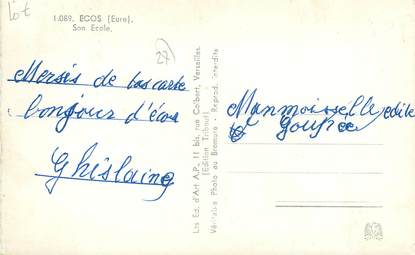 Lot
1.089. ECOS (Eure).
Son Ecole.
27
Mersis de tas carte
bonjour d'écos
Ghislaine
Les Ed. d'Art A.P., 11 bis, rue Colbert, Versailles.
(Edition Tribout)
Véritable Photo au Bromure - Reprod. interdite
Manmoisselle edite
goupée